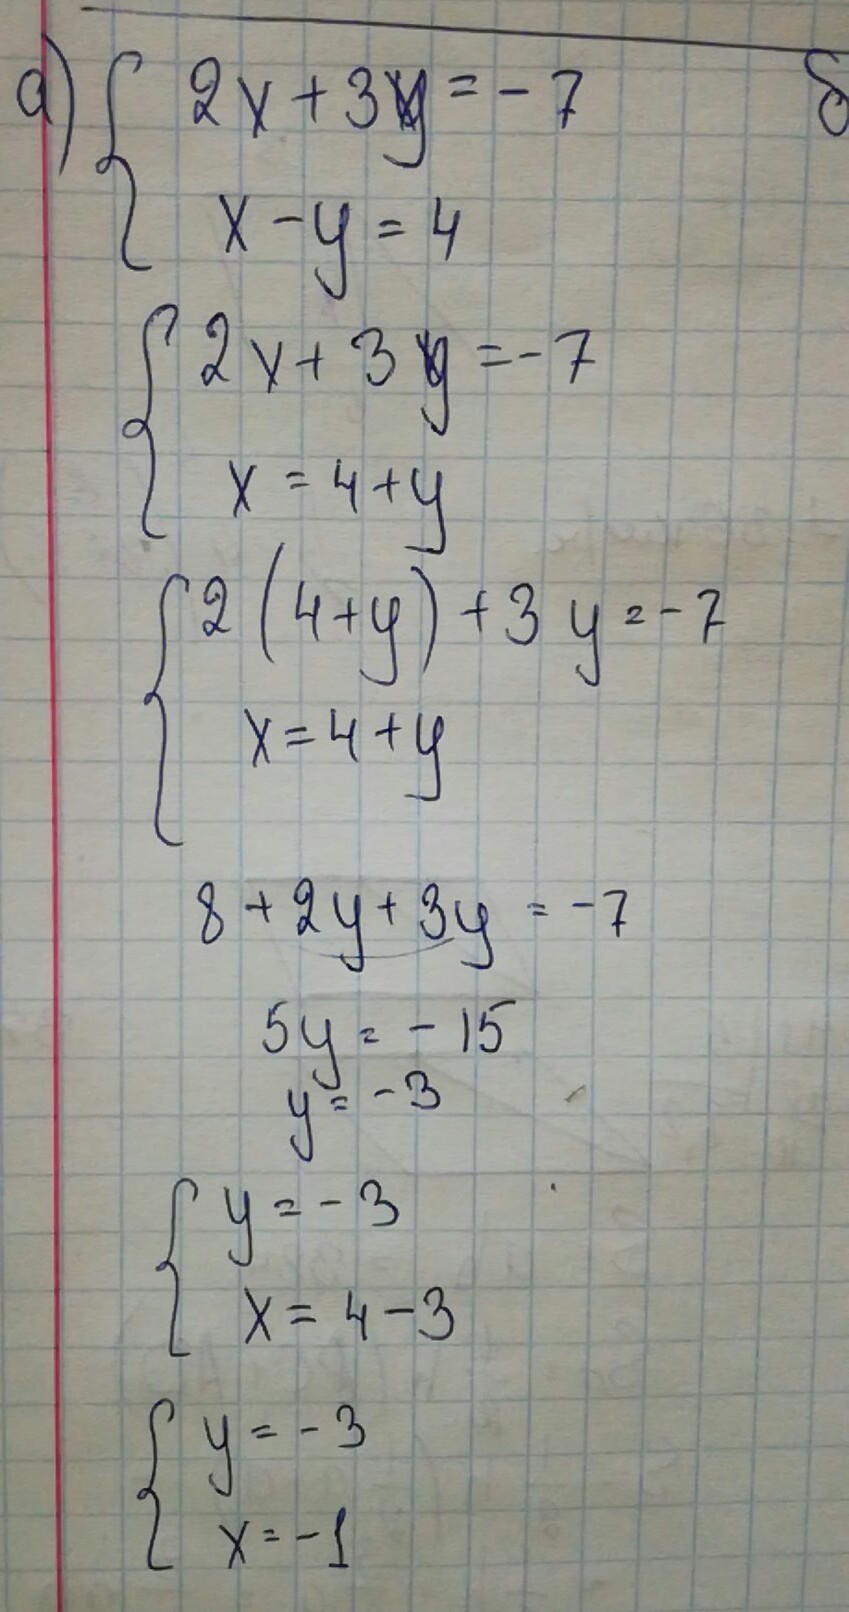 а) 2x + 3y = - 7
б
x - y = 4
2x + 3y = - 7
x = 4 + y
2 (4 + y) + 3 y = - 7
x = 4 + y
8 + 2y + 3y = - 7
5y = - 15
y = - 3
y = - 3
x = 4 - 3
y = - 3
x = - 1